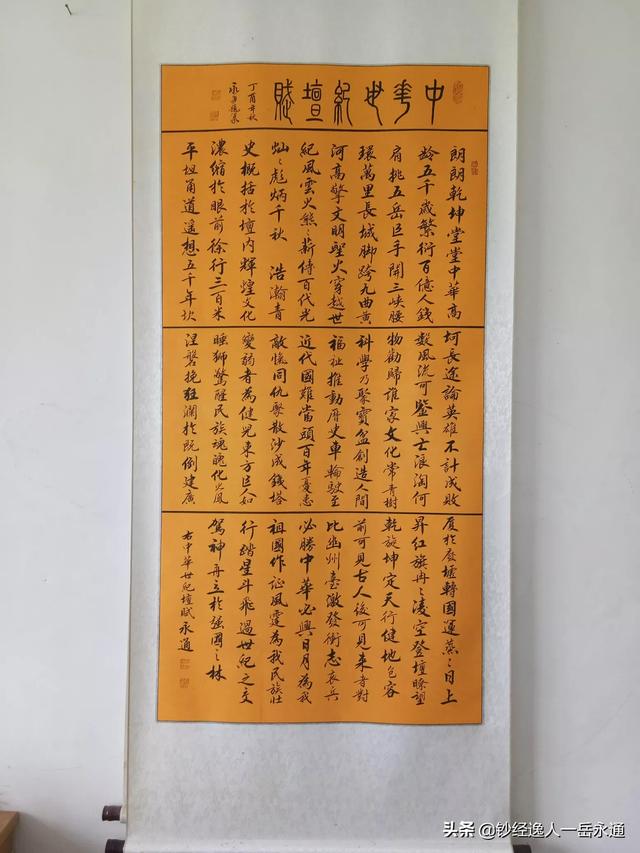 中華世紀壇賦
丁酉年秋
永通題篆
朗朗乾坤堂堂中華高
齡五千歲繁衍百億人錢
肩挑五岳巨手開三峽腰
環萬里長城脚跨九曲黄
河高擎文明聖火穿越世
紀風雲火熊〻薪傳百代光
燦〻彪炳千秋 浩瀚青
史概括於壇内輝煌文化
濃縮於眼前徐行三百米
平坦甬道遥想五千年坎
坷長途論英雄不計成敗
數風流可鑒興亡浪淘何
物勸歸誰家文化常青樹
科學乃聚寶盆創造人間
福祉推動曆史車輪駛至
近代國難當頭百年憂患
敵愾同仇聚散沙成錢塔
變弱者為健兒東方巨人如
睡獅驚醒民族魂魄化火鳳
涅磐挽狂瀾於既倒建廣
厦於廢墟轉國運蒸〻日上
昇紅旗冉〻凌空登壇瞭望
乾旋坤定天行健地包容
前可見古人後可見来者對
比幽州臺激發衝志哀兵
必勝中華必興日月為我
祖國作証風霆為我民族壯
行踏星斗飛過世紀之交
駕神舟立於强國之林
右中華世紀壇賦永通
头条 @钞经逸人一岳永通